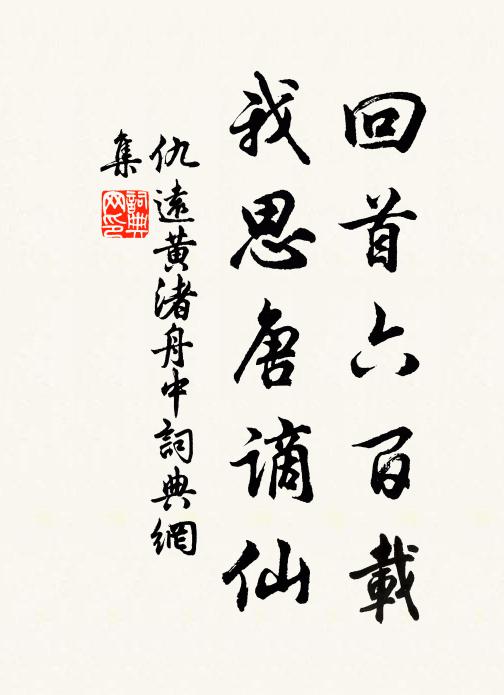 回首六百載
我思唐謫仙
仇遠黃渚舟中詞典網
集
詞典網印